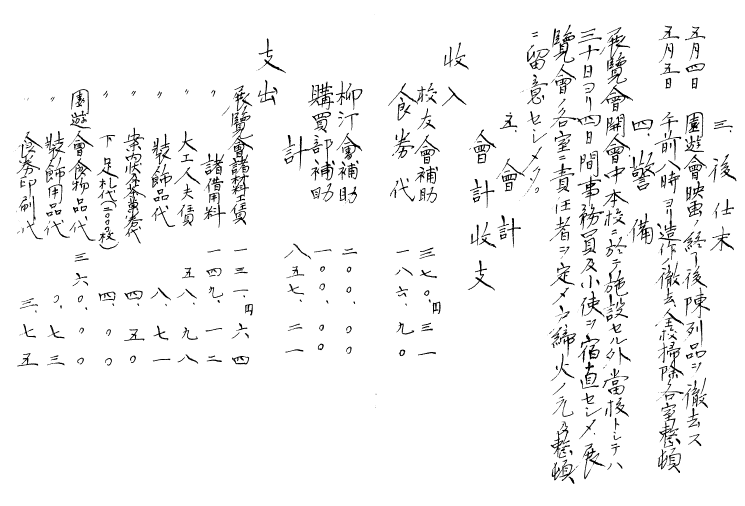 三、後仕末
五月四日 園遊會映畫ノ終了後陳列品ヲ撤去ス
五月五日 午前八時ヨリ造作ノ徹去 全校掃除各室整頓
四、警備
展覽會開會中本校ニ於テ施設セル外當校トシテハ
三十日ヨリ四日間事務員及小使ヲ宿直セシメ、展
覽會ノ各室ニ責任者ヲ定メ戸締火ノ元ヲ整頓
ニ留意セシメタリ。
五、會計
會計收支
收入
校友會補助 三七〇、円三一
食券代 一八六、九〇
柳汀會補助 二〇〇、〇〇
購買部補助 一〇〇、〇〇
計 八五七、二一
支出
展覽會諸料工賃 一三一、円六四
〃 諸借用料 一四九、一二
〃 大工人夫賃 五八、九八
〃 裝飾品代 八、七一
〃 案內狀 代 四、五〇
〃 下足札代(二〇〇枚) 四、〇〇
園遊會食物品代 三六〇、〇〇
〃 裝飾用品代 〇、七三
〃 食券印刷代 三、七五